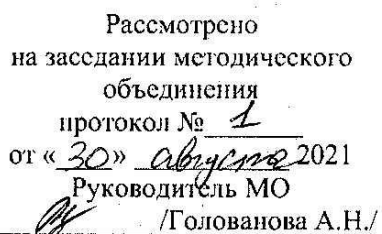 Рассмотрено
на заседании методического
объединения
протокол № 1
от « 30 » августа 2021
Руководитель МО
/Голованова А.Н./